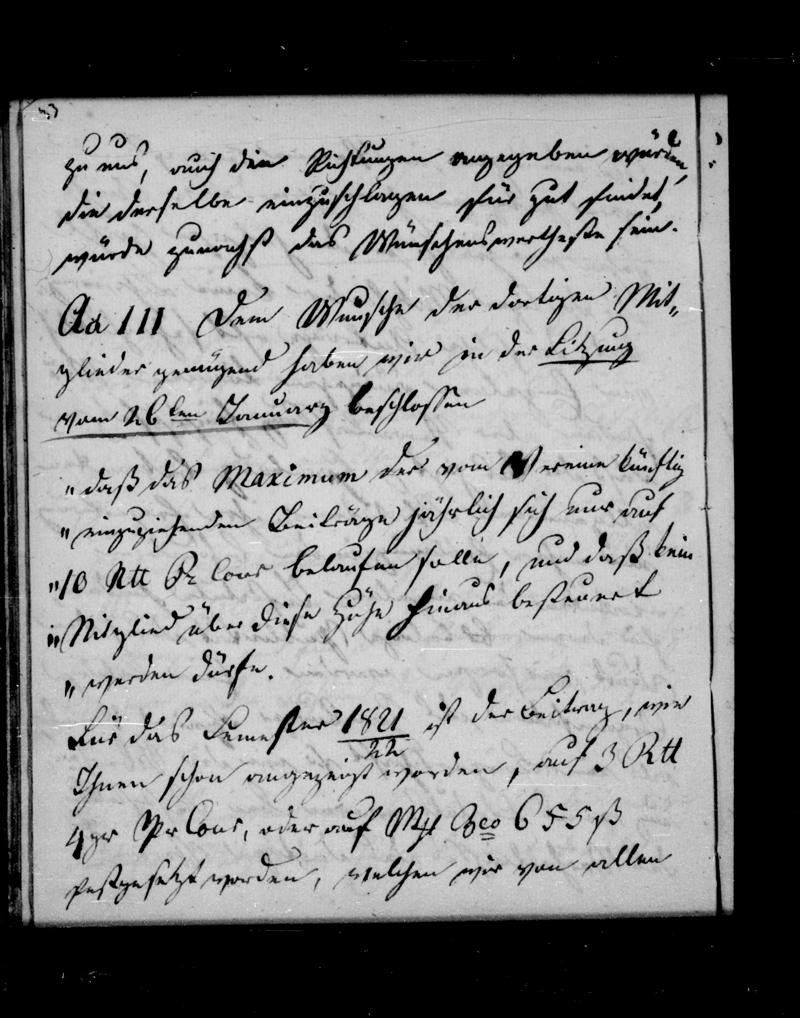 zu uns, auch die Richtungen angegeben würden,
die derselbe einzuschlagen für gut findet,
würde zunächst das Wünschenswertheste sein.
Ad III Dem Wunsche der dortigen Mit„
glieder genügend haben wir in der Sitzung
vom 26ten January beschlossen
„daß das Maximum der vom Vereine künftig
„einzuziehenden Beiträge jährlich sich nur auf
„10 Rtt Pr Cour belaufen solle, und daß kein
„Mitglied über diese Höhe hinaus besteuert
„werden dürfe.
Für das Semester 1821/22 ist der Beitrag, wie
Ihnen schon angezeigt worden, auf 3 Rtt
4 gr Pr Cour, oder auf Mk Bco 6 5 ß
festgesetzt worden, welchen wir von allen